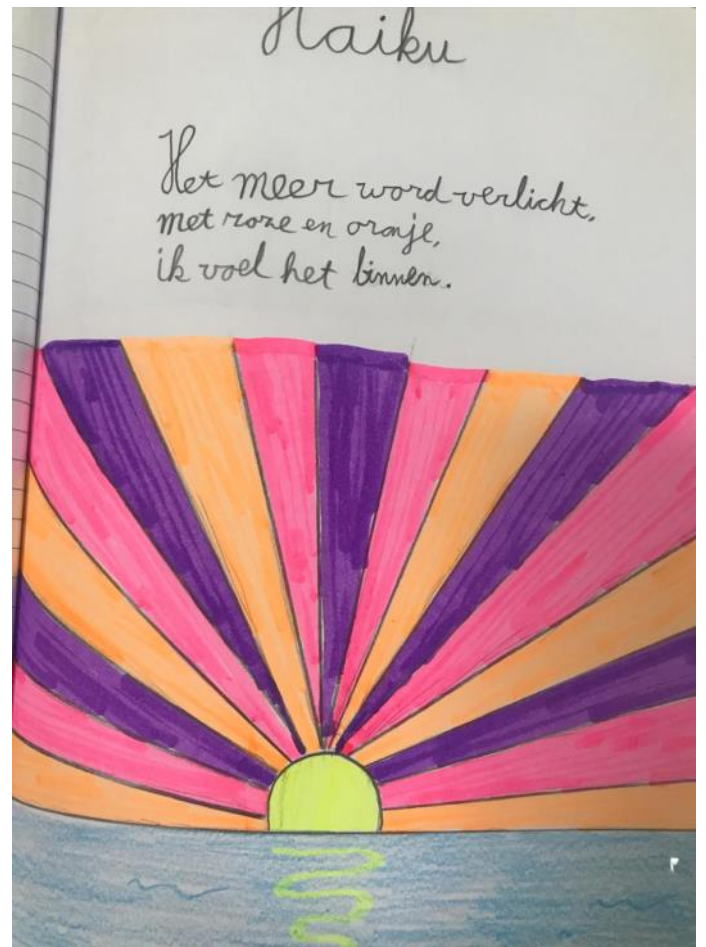 Haiku
Het meer word verlicht,
met roze en oranje,
ik voel het binnen.